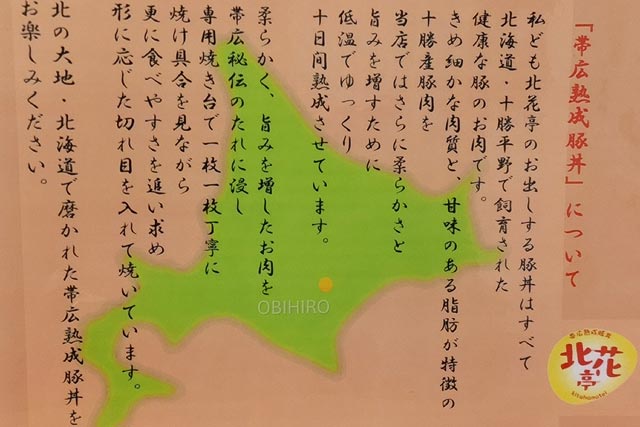 『帯広熟成豚丼』について
私ども北花亭のお出しする豚丼はすべて
北海道・十勝平野で飼育された
健康な豚のお肉です。
きめ細かな肉質と、甘味のある脂肪が特徴の
十勝産豚肉を
当店ではさらに柔らかさと
旨みを増すために
低温でゆっくり
十日間熟成させています。
柔らかく、旨みを増したお肉を
帯広秘伝のたれに浸し
専用焼き台で一枚一枚丁寧に
焼け具合を見ながら
更に食べやすさを追い求め
形に応じた切れ目を入れて焼いています。
北の大地・北海道で磨かれた帯広熟成豚丼を
お楽しみください。
OBIHIRO
帯広熟成豚丼
北花亭
kitahanatei